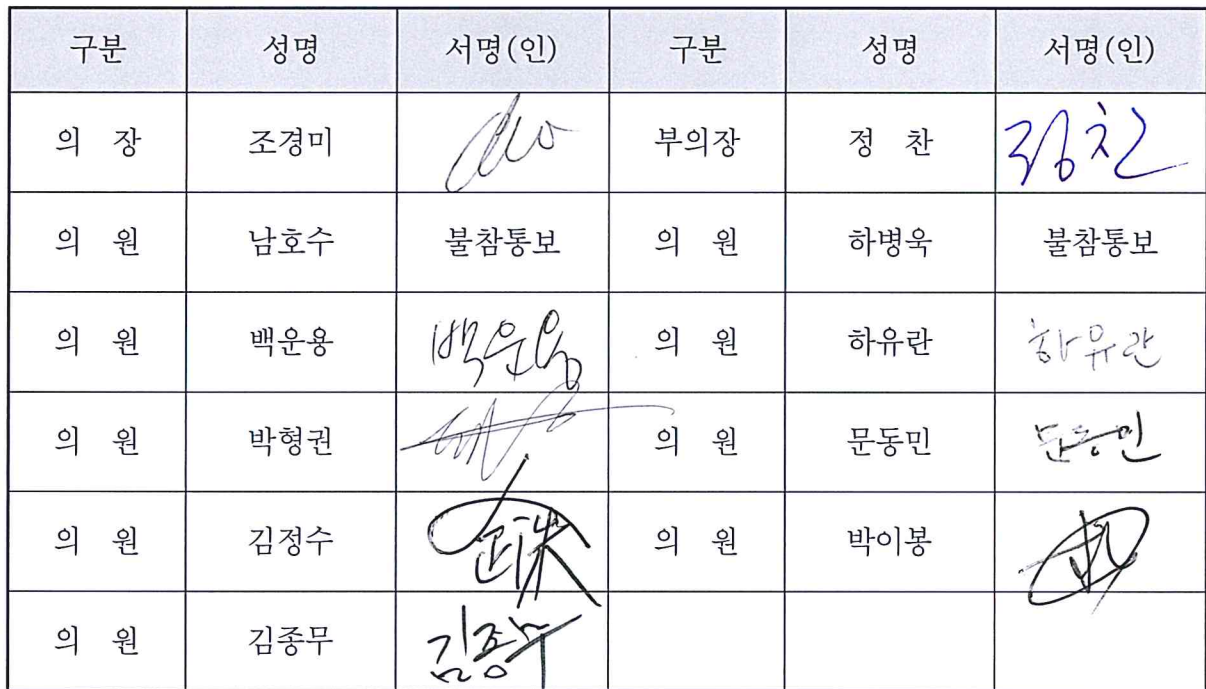 구분 성명 서명(인) 구분 성명 서명(인)
의 장 조경미 부의장 정 찬 정찬
의 원 남호수 불참통보 의 원 하병욱 불참통보
의 원 백운용 백운용 의 원 하유란 하유란
의 원 박형권 의 원 문동민 문동민
의 원 김정수 의 원 박이봉
의 원 김종무 김종무